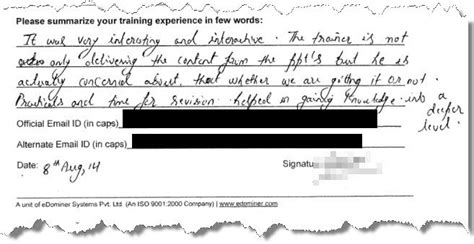 Please summarize your training experience in few words:
It was very interating and interactive. The trainer is not
only delivering the content from the ppt's but he is
actually concerned about, that whether we are getting it or not.
Practicals and time for revision helped in gaining knowledge into a
deeper
level.
Official Email ID (in caps)
Alternate Email ID (in caps)
Date: 8th Aug, 14 Signatu
A unit of eDominer Systems Pvt. Ltd (An ISO 9001:2000 Company) | www.edominer.com